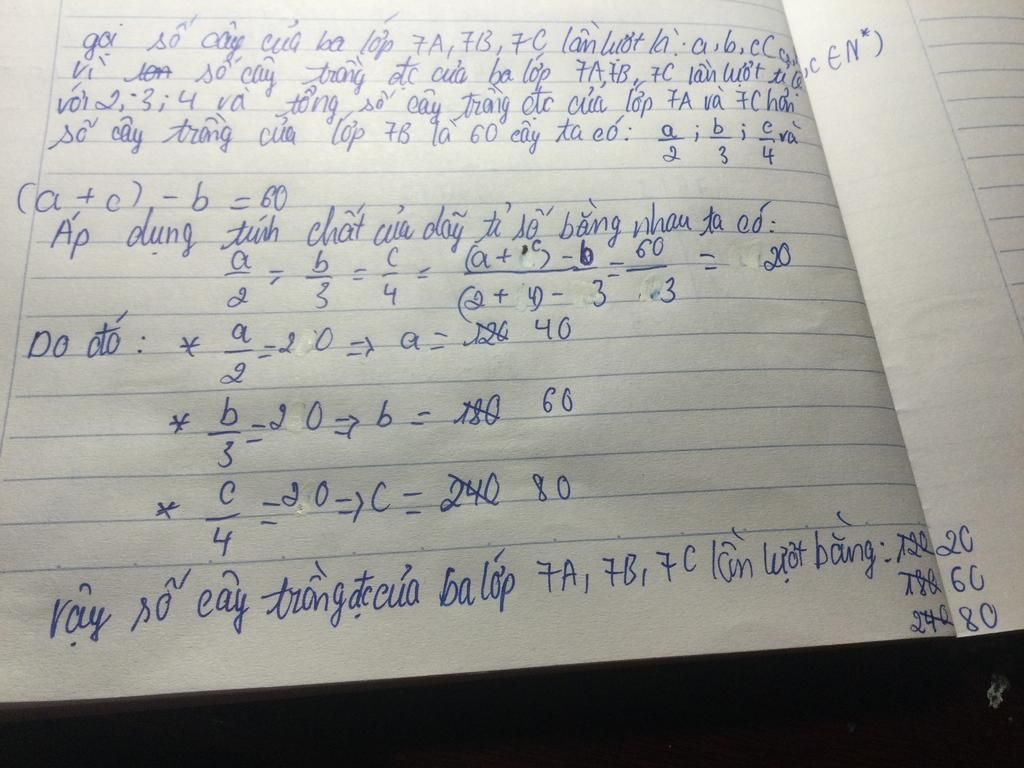 gọi số cây của ba lớp 7A, 7B, 7C lần lượt là: a, b, c (a, b, c ∈ N*)
vì số cây trồng đc của ba lớp 7A, 7B, 7C lần lượt tỉ lệ
với 2; 3; 4 và tổng số cây trồng đc của lớp 7A và 7C hơn
số cây trồng của lớp 7B là 60 cây ta có: a/2 ; b/3 ; c/4 và
(a + c) - b = 60
Áp dụng tính chất của dãy tỉ số bằng nhau ta có:
a/2 = b/3 = c/4 = (a + c) - b/(2 + 4) - 3 = 60/3 = 20
Do đó: * a/2 = 20 => a = 120 40
* b/3 = 20 => b = 180 60
* c/4 = 20 => c = 240 80
Vậy số cây trồng đc của ba lớp 7A, 7B, 7C lần lượt bằng: 120 20
180 60
240 80